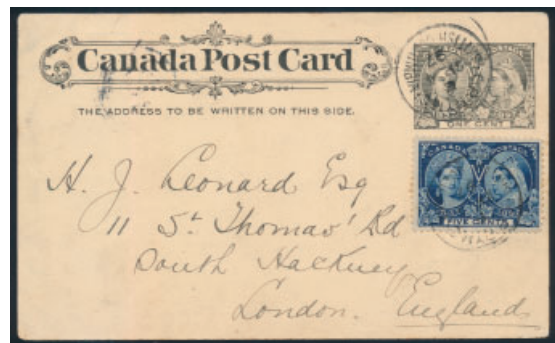 Canada Post Card
THE ADDRESS TO BE WRITTEN ON THIS SIDE.
ONE CENT
CANADA POSTAGE
FIVE CENTS
H. J. Leonard Esq
11 St. Thomas' Rd
South Hackney
London. England